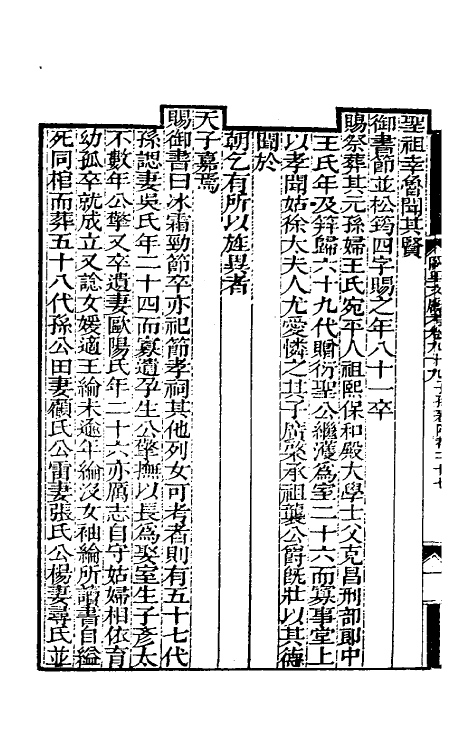 聖祖幸魯聞其賢
御書節並松筠四字賜之年八十一卒
賜祭葬其元孫婦王氏宛平人祖熙保和殿大學士父克昌刑部郎中
王氏年及筓歸六十九代贈衍聖公繼濩爲室二十六而寡事堂上
以孝聞姑徐太夫人尤愛憐之其子廣棨承祖襲公爵既壯以其德
聞於
朝乞有所以旌異者
天子嘉焉
賜御書曰冰霜勁節卒亦祀節孝祠其他列女可考者則有五十七代
孫認妻吳氏年二十四而寡遺孕生公擎撫以長爲娶室生子彥太
不數年公擎又卒遺妻歐陽氏年二十六亦厲志自守姑婦相依育
幼孤卒就成立又說女媛適王綸未逾年綸沒女袖綸所讀書自縊
死同棺而葬五十八代孫公田妻顧氏公雷妻張氏公楊妻尋氏並